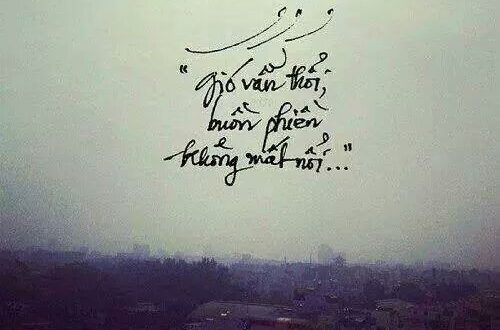 "gió vẫn thổi,
buồn phiền
không mất nổi..."